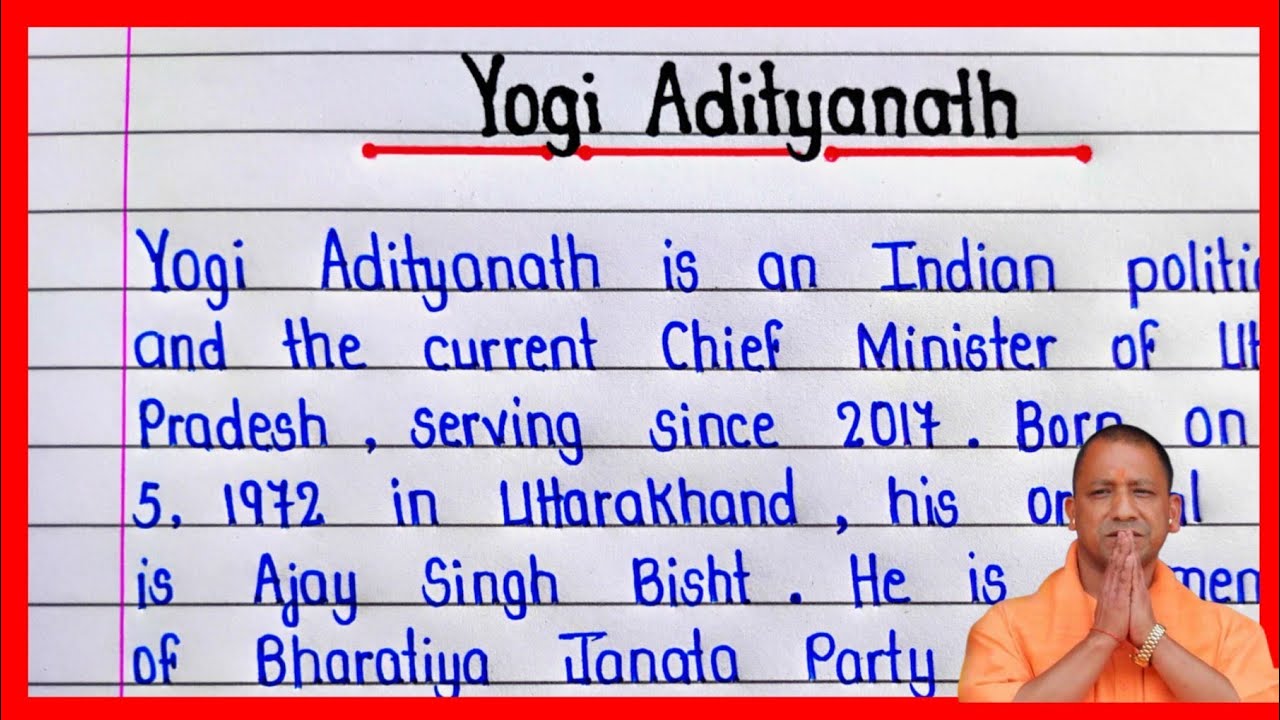 Yogi Adityanath
Yogi Adityanath is an Indian politi
and the current Chief Minister of Utt
Pradesh, serving since 2017. Born on
5, 1972 in Uttarakhand, his
is Ajay Singh Bisht. He is
of Bharatiya Janata Party